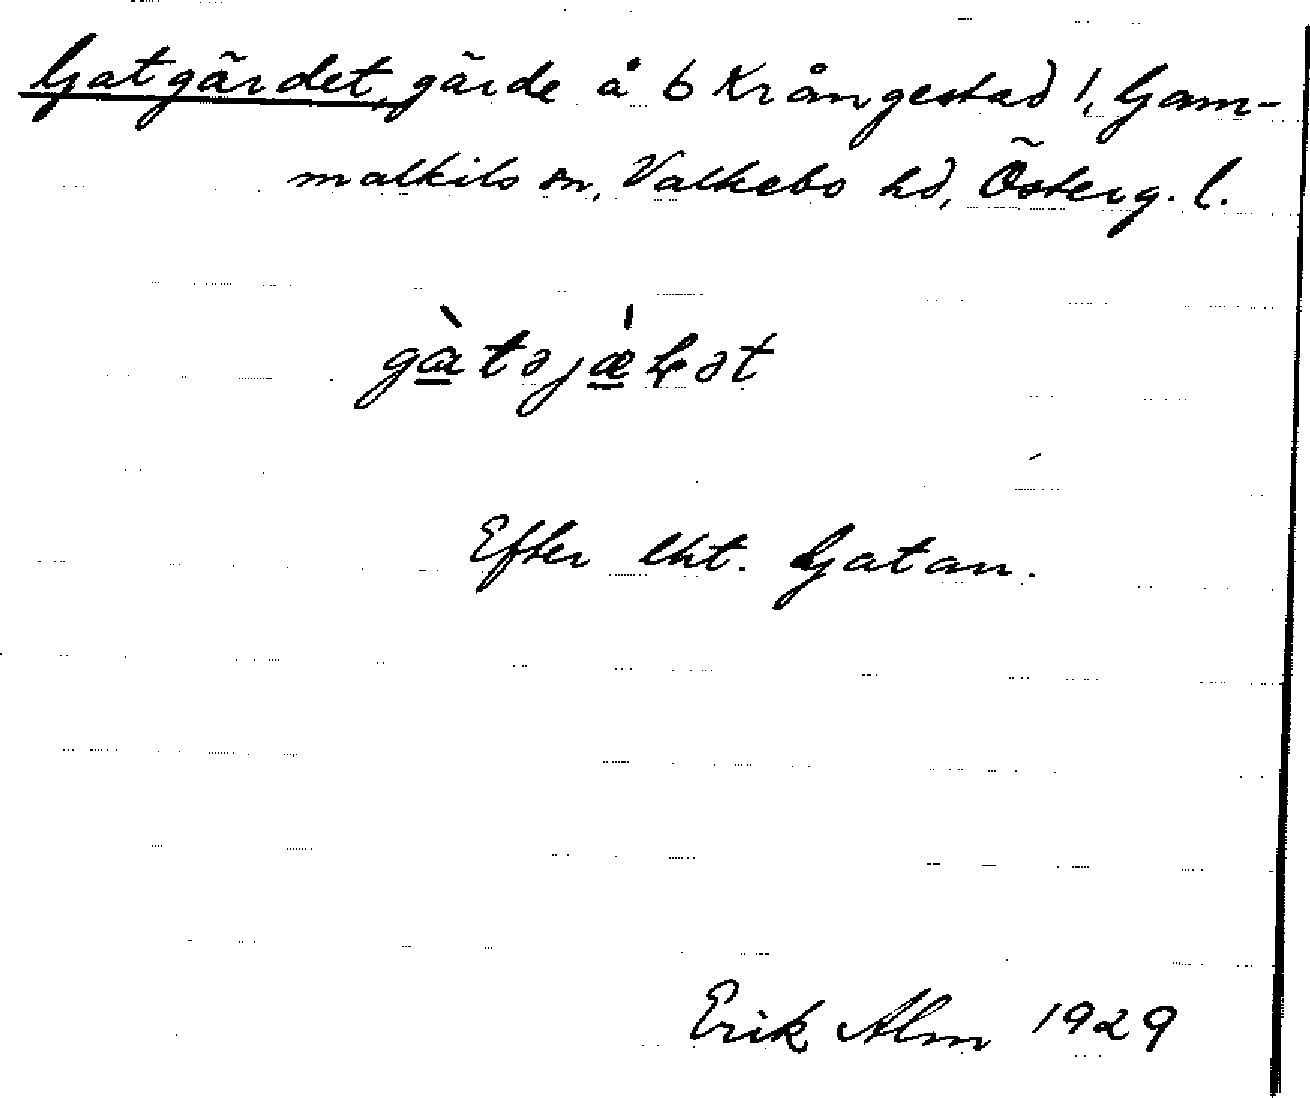 Gatgärdet, gärde å 6 Krångestad 1, Gam-
malkils sn, Valkebo hd, Österg. l.
gàtəjæ̠ɽət
Efter lht. Gatan.
Erik Alm 1929